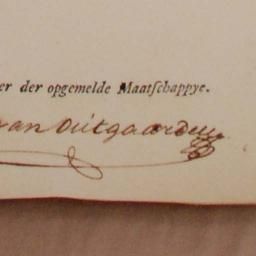 er der opgemelde Maatſchappye.
van Outgaarden